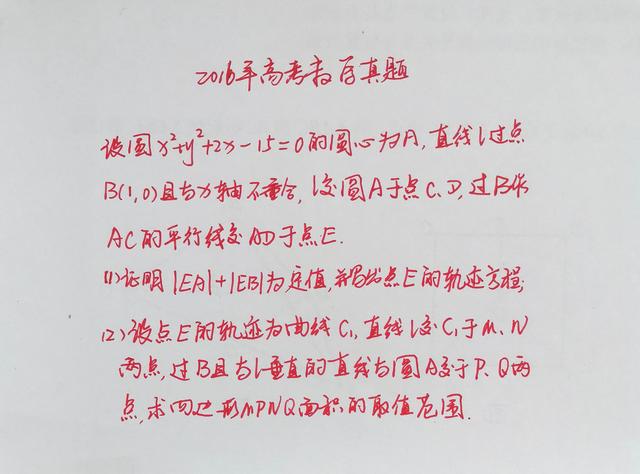 2016年高考数学真题
设圆x²+y²+2x-15=0的圆心为A,直线l过点
B(1,0)且与x轴不重合,l交圆A于点C、D,过B作
AC的平行线交AD于点E.
(1)证明|EA|+|EB|为定值,并写出点E的轨迹方程;
(2)设点E的轨迹为曲线C₁,直线l交C₁于M、N
两点,过B且与l垂直的直线与圆A交于P、Q两
点,求四边形MPNQ面积的取值范围.